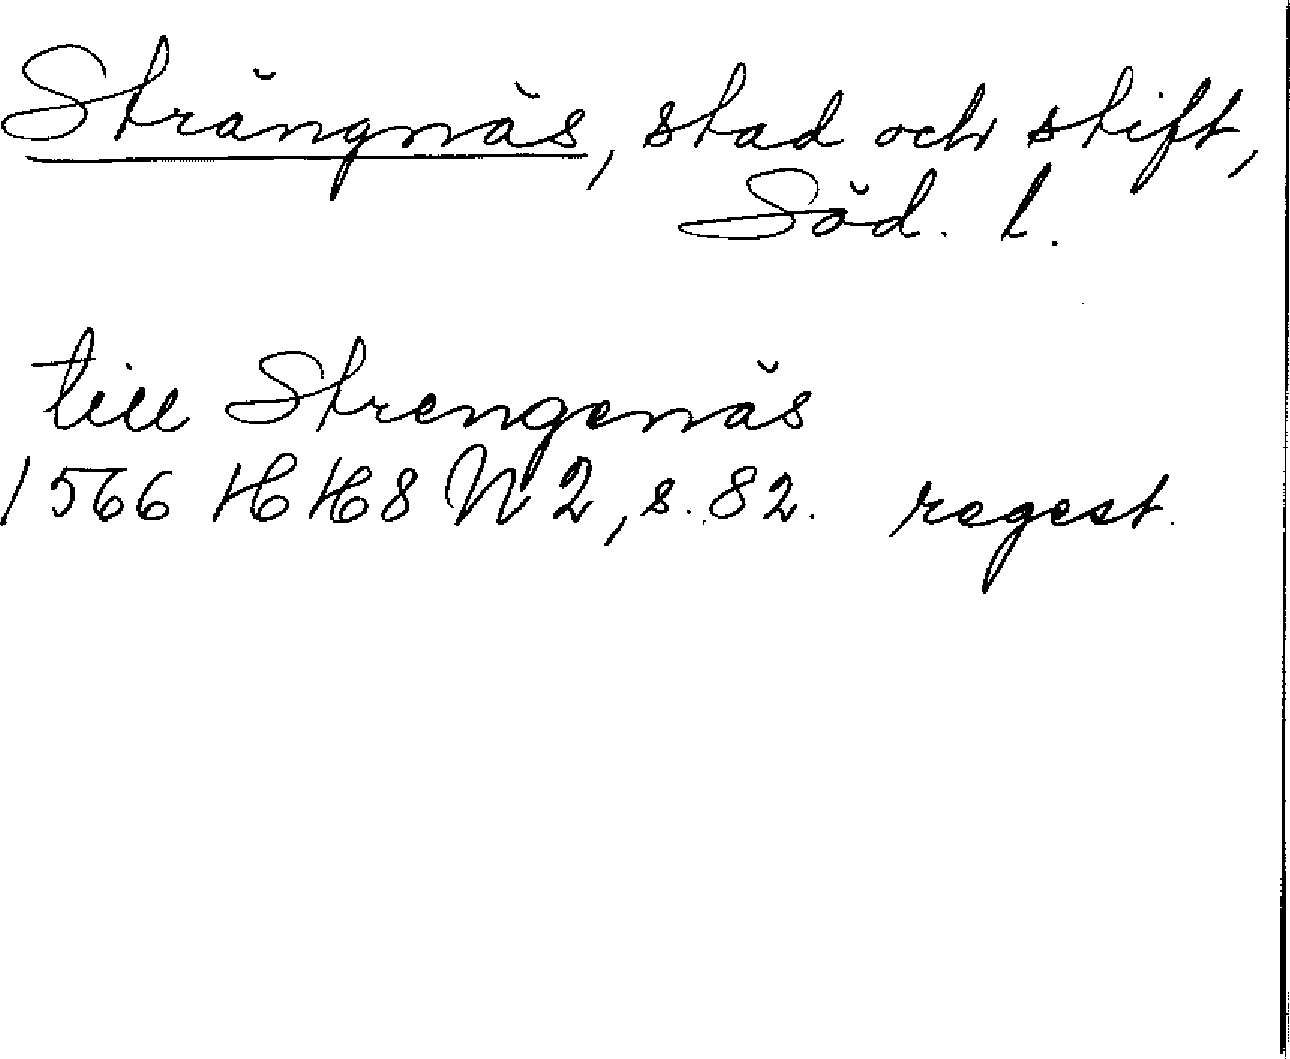 Strängnäs, stad och stift,
Söd. l.
till Strengenäs
1566 HH8 N 2, s. 82. regest.